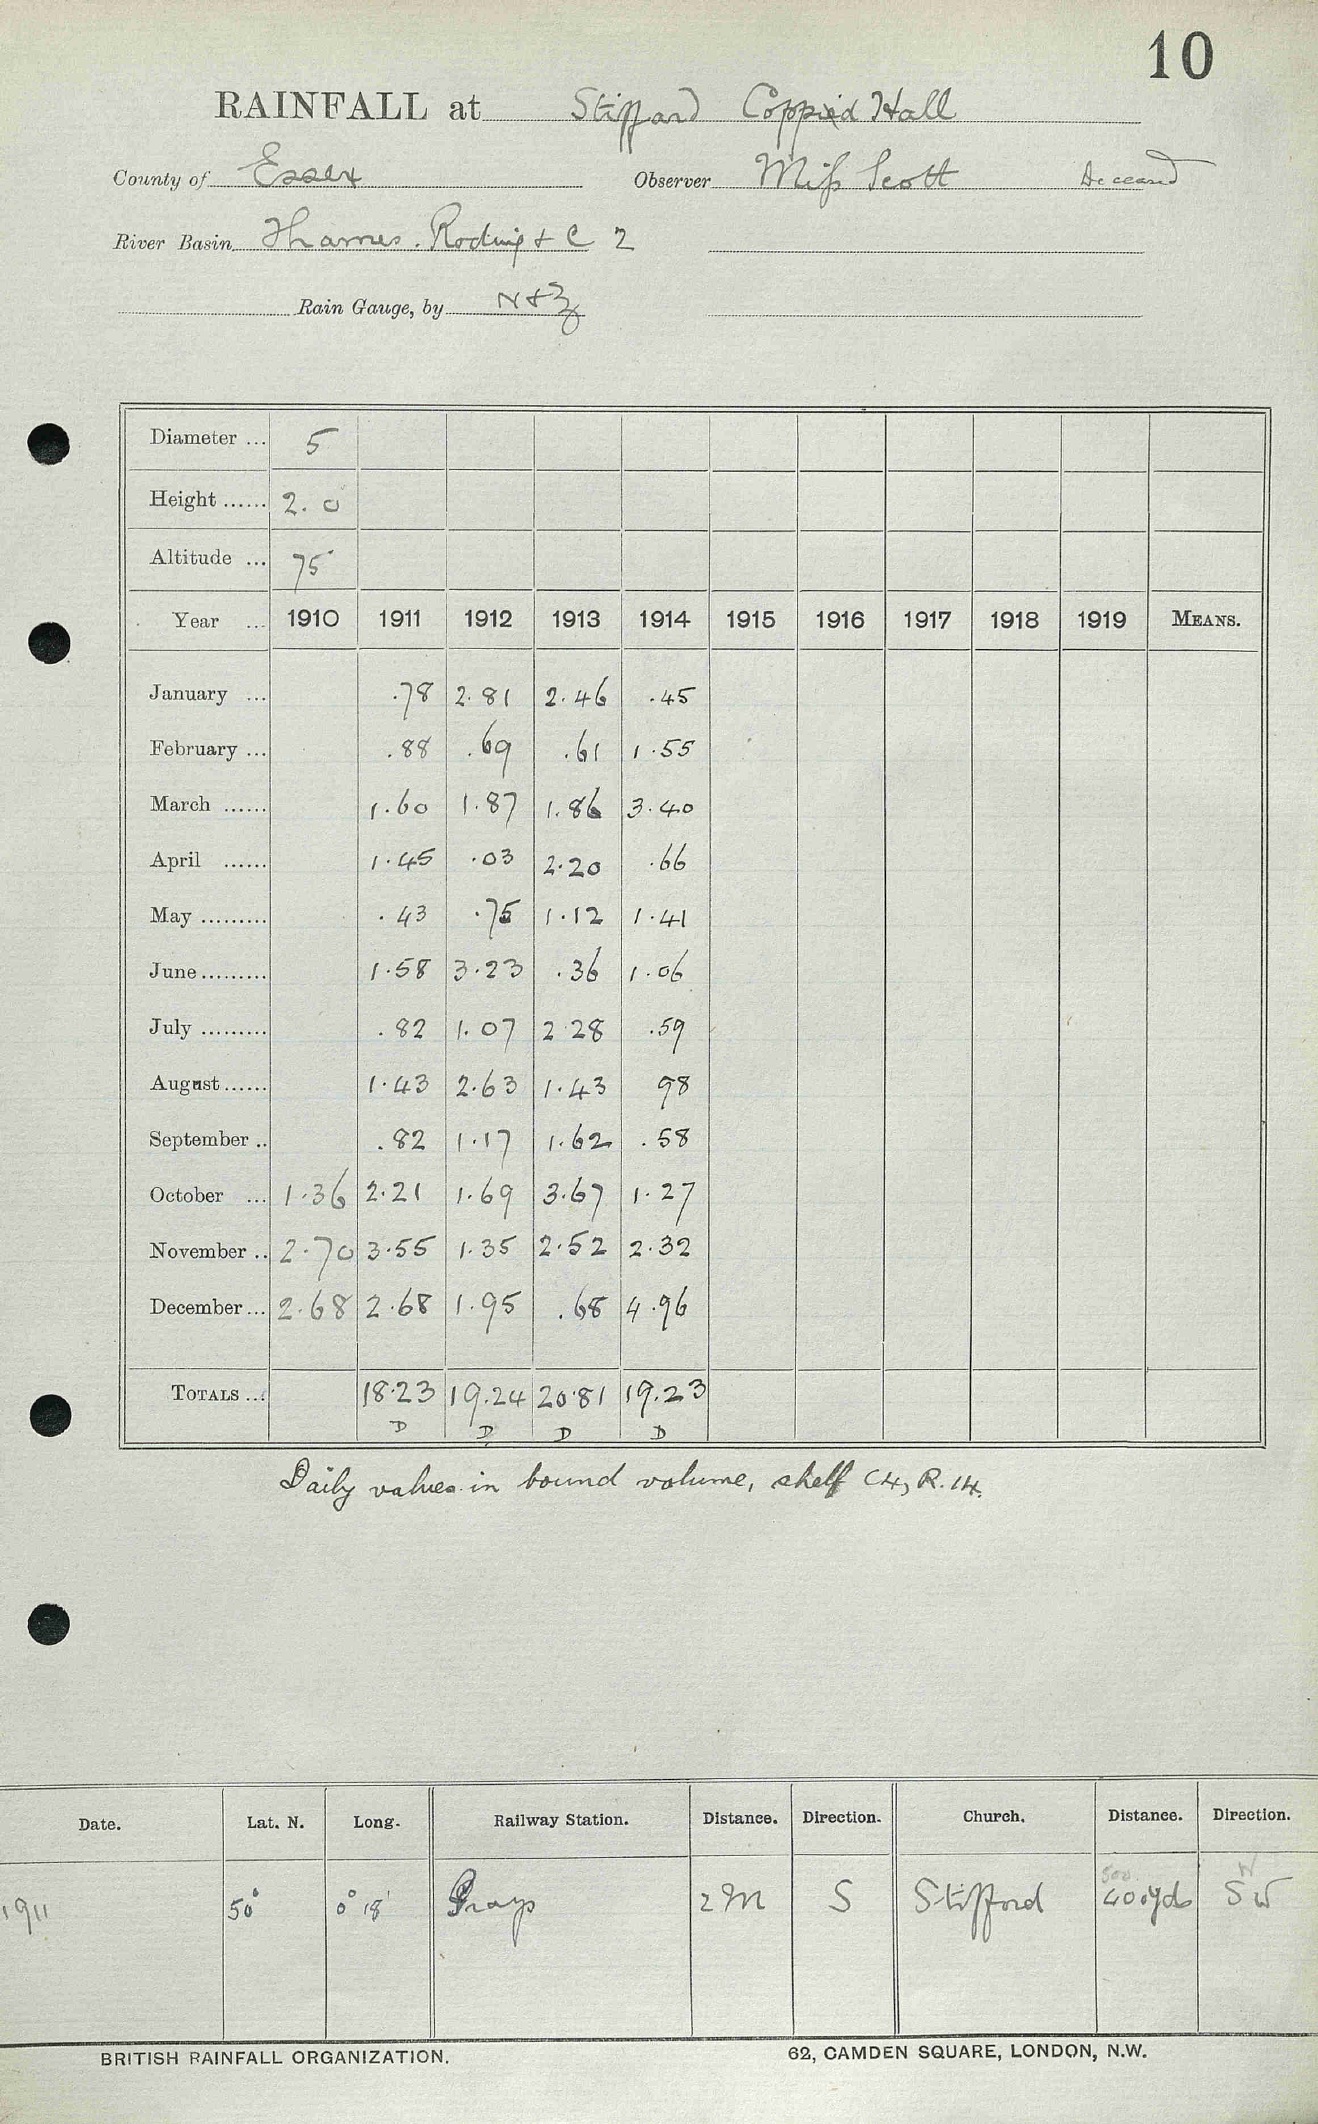 10
RAINFALL at Stifford Coppid Hall
County of Essex Observer Miss Scott Deceased
River Basin Thames. Roding & C 2
Rain Gauge, by N & Z
Diameter ... 5
Height ...... 2.0
Altitude ... 75
Year ... 1910 1911 1912 1913 1914 1915 1916 1917 1918 1919 MEANS.
January ... .78 2.81 2.46 .45
February ... .88 .69 .61 1.55
March ...... 1.60 1.87 1.86 3.40
April ...... 1.45 .03 2.20 .66
May ......... .43 .75 1.12 1.41
June ......... 1.58 3.23 .36 1.06
July ......... .82 1.07 2.28 .59
August ...... 1.43 2.63 1.43 98
September .. .82 1.17 1.62 .58
October ... 1.36 2.21 1.69 3.67 1.27
November .. 2.70 3.55 1.35 2.52 2.32
December ... 2.68 2.68 1.95 .68 4.96
TOTALS ... 18.23 19.24 20.81 19.23
D D D D
Daily values in bound volume, shelf C4, R.14.
Date. Lat. N. Long. Railway Station. Distance. Direction. Church. Distance. Direction.
500 W
1911 50° 0° 18' Grays 2 M S Stifford 400 yds SW
BRITISH RAINFALL ORGANIZATION. 62, CAMDEN SQUARE, LONDON, N.W.